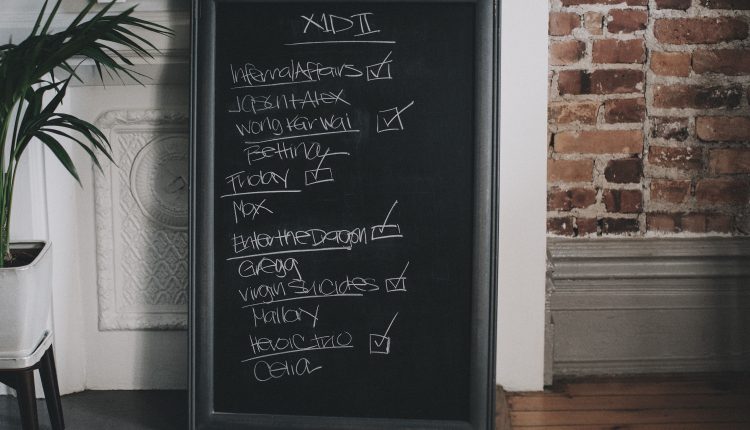 XIDII
Infernal Affairs
Jason + Alex
Wong Kar Wai
Bettina
Friday
Max
Enter the Dragon
Gregg
Virgin Suicides
Mallory
Heroic Trio
Celia